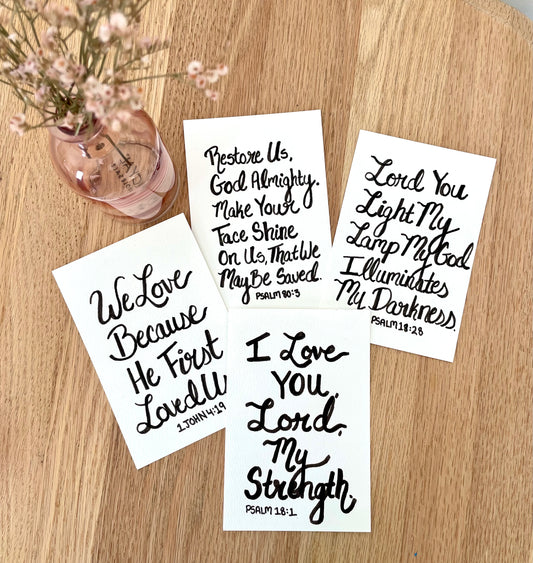 Restore Us,
God Almighty.
Make Your
Face Shine
On Us, That We
May Be Saved.
PSALM 80:3
Lord You
Light My
Lamp My God
Illuminates
My Darkness.
PSALM 18:28
We Love
Because
He First
Loved Us
1 JOHN 4:19
I Love
YOU,
Lord,
My
Strength.
PSALM 18:1